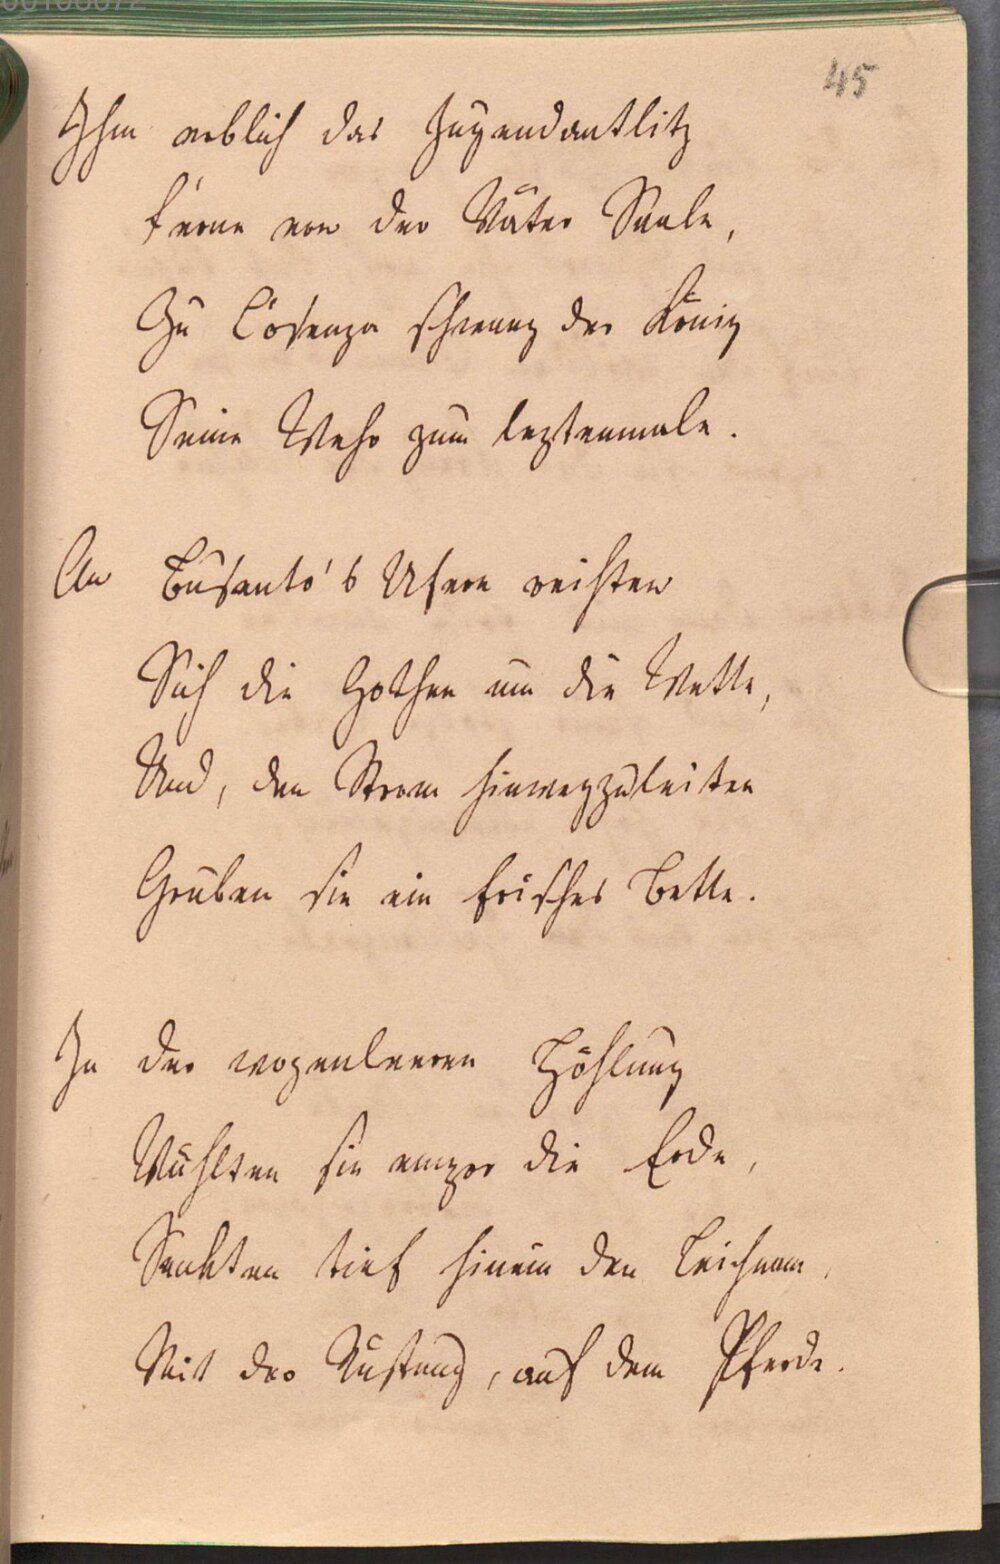 45
Ihm erblich das Jugendantlitz
ferne von der Väter Saale,
Zu Cosenza schwang der König
Seine Wehr zum leztenmale.
An Busento's Ufern reihten
Sich die Gothen um die Wette,
Und, den Strom hinwegzuleiten
Gruben sie ein frisches Bette.
In der wogenleeren Höhlung
Wühlten sie empor die Erde,
Senkten tief hinein den Leichnam,
Mit der Rüstung, auf dem Pferde.